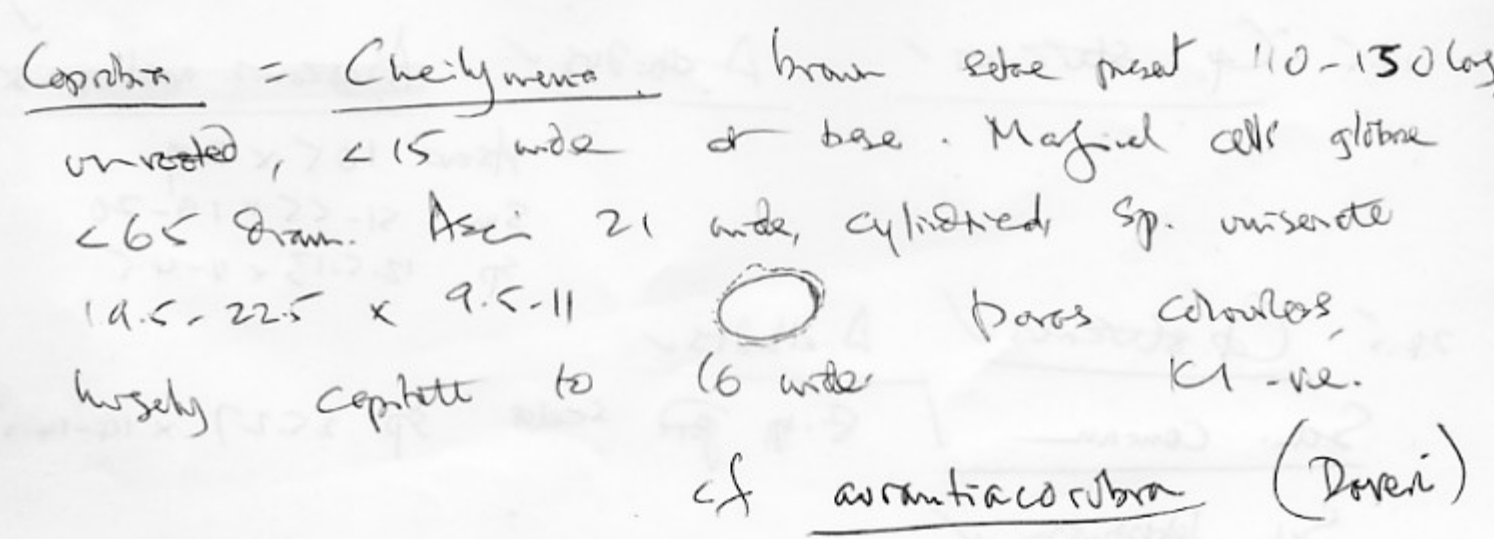 Coprobia = Cheilymenia. brown setae present 110-150 long
unrooted, <15 wide at base. Marginal cells globose
<65 diam. Asci 21 wide, cylindrical, sp. uniseriate
19.5-22.5 x 9.5-11 paras colourless,
hugely capitate to 16 wide KI -ve.
cf aurantiacorubra (Doveri)